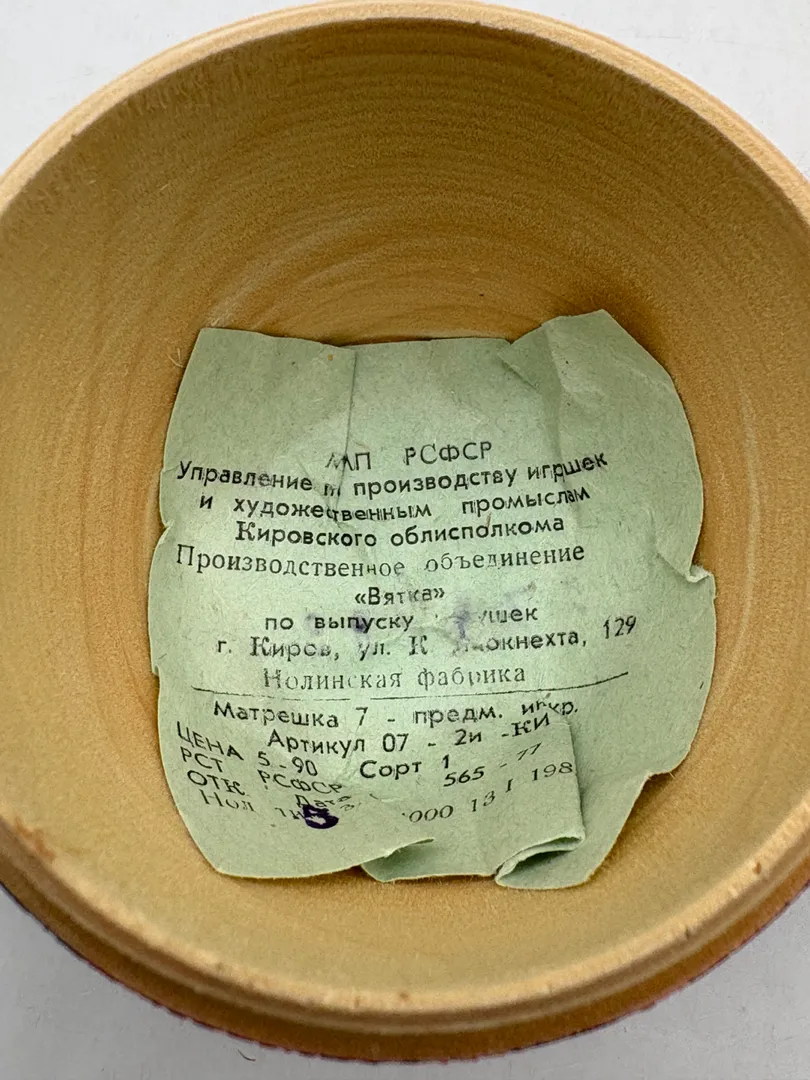 МП РСФСР
Управление производству игрушек
и художественным промыслам
Кировского облисполкома
Производственное объединение
«Вятка»
по выпуску
г. Киров, ул. К 129
Нолинская фабрика
Матрешка 7 - предм. инкр.
Артикул 07 - 2и -КИ
ЦЕНА 5-90 Сорт 1
РСТ РСФСР 565 - 77
ОТК Дата
5
Нол 000 13 I 198